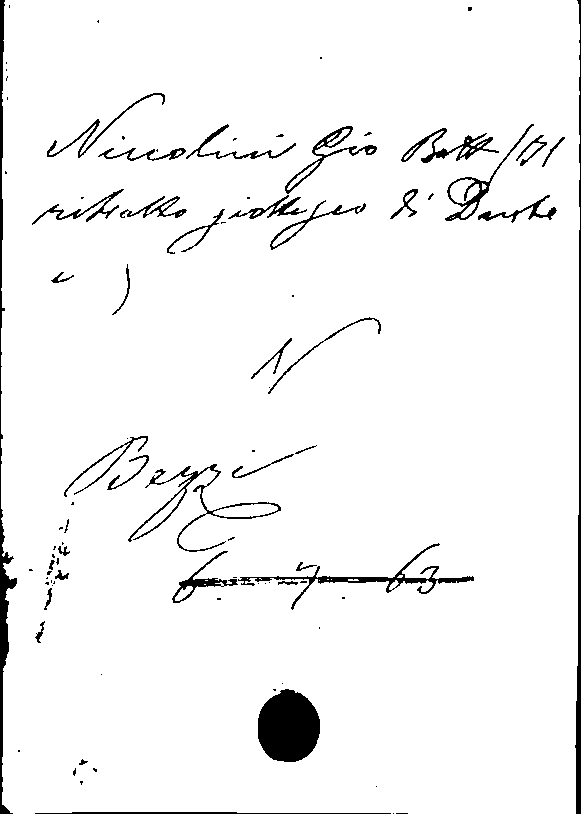 Niccolini Gio Batt (Il
ritratto giottesco di Dante
)
N
Bezzi
6 7 63